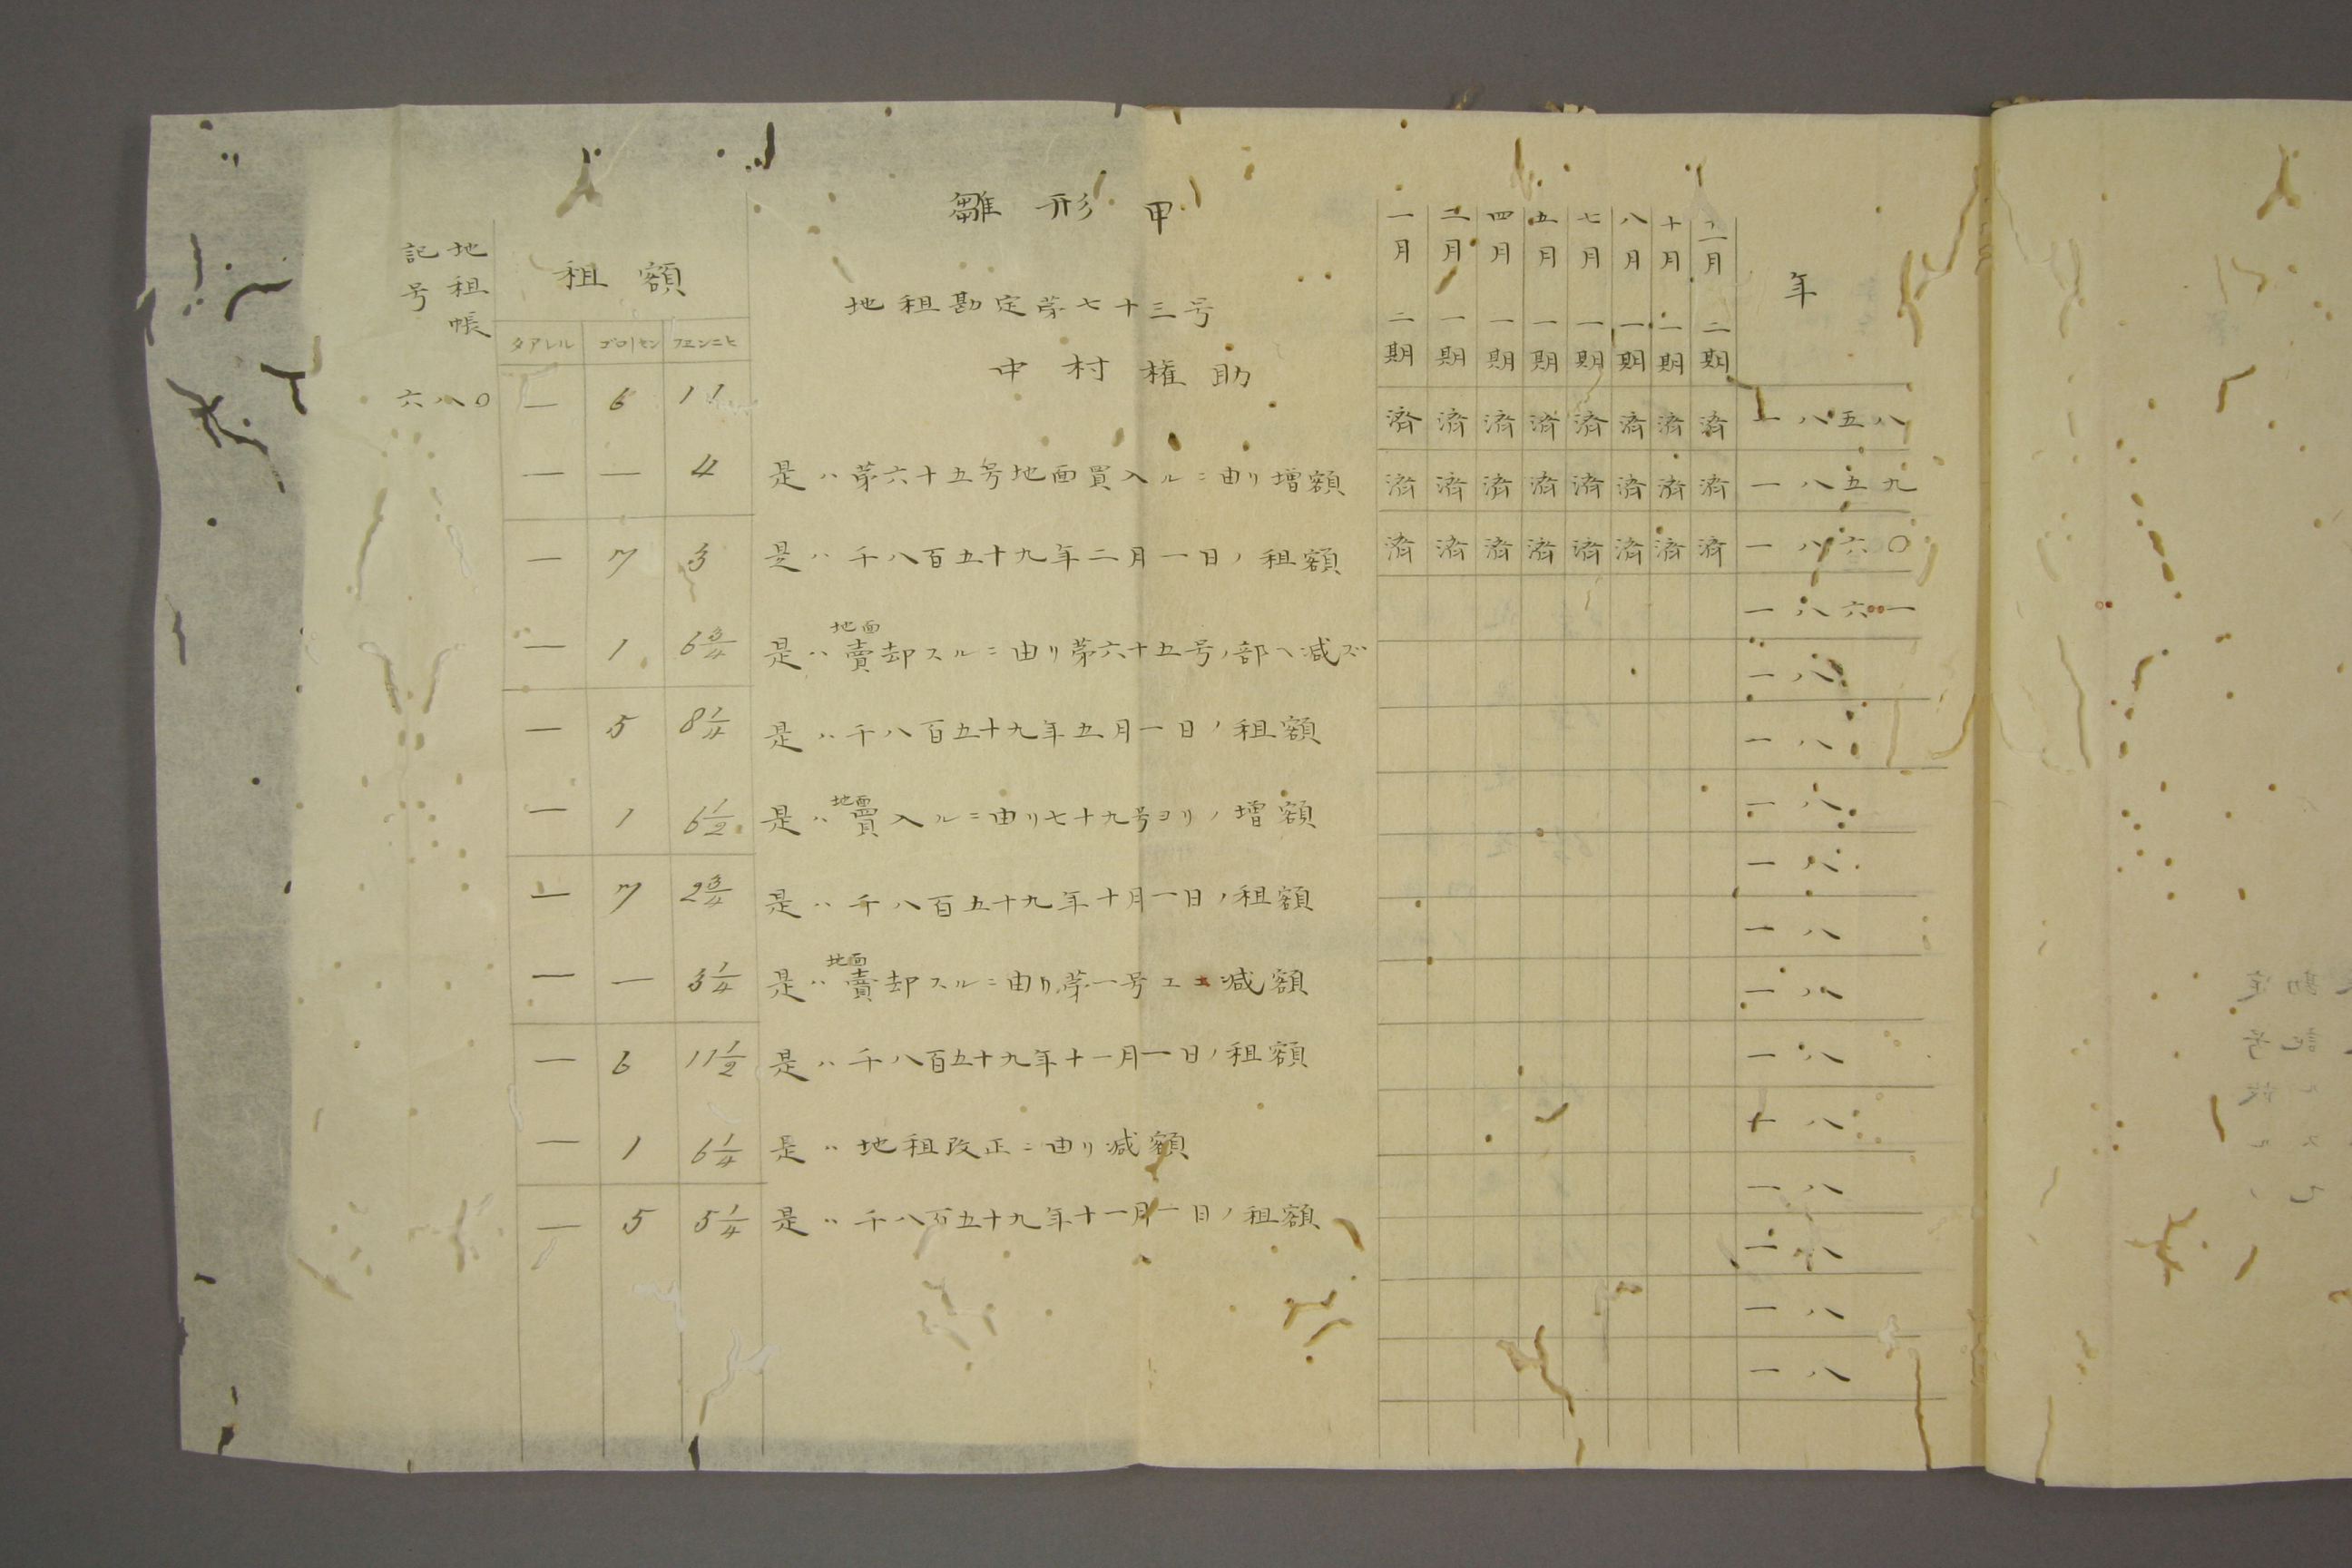 雛形甲
地租帳
記号
租額
タアレル ゴロセン フエンニヒ
地租勘定第七十三号
中村権助
六八〇 — 6 11
— — 4 是ハ第六十五号地面買入ルニ由リ増額
— 7 3 是ハ千八百五十九年二月一日ノ租額
— 1 6 3/4 是ハ地面賣却スルニ由リ第六十五号ノ部ヘ減ズ
— 5 8 1/4 是ハ千八百五十九年五月一日ノ租額
— 1 6 1/2 是ハ地面買入ルニ由リ七十九号ヨリノ増額
— 7 2 3/4 是ハ千八百五十九年十月一日ノ租額
— — 3 1/4 是ハ地面賣却スルニ由リ第一号エ減額
— 6 11 1/2 是ハ千八百五十九年十一月一日ノ租額
— 1 6 1/4 是ハ地租改正ニ由リ減額
— 5 5 1/4 是ハ千八百五十九年十一月一日ノ租額
一月 二月 四月 五月 七月 八月 十月 十一月 年
二期 一期 一期 一期 一期 一期 一期 二期
済 済 済 済 済 済 済 済 一八五八
済 済 済 済 済 済 済 済 一八五九
済 済 済 済 済 済 済 済 一八六〇
一八六一
一八
一八
一八
一八
一八
一八
一八
一八
一八
一八
一八
一八